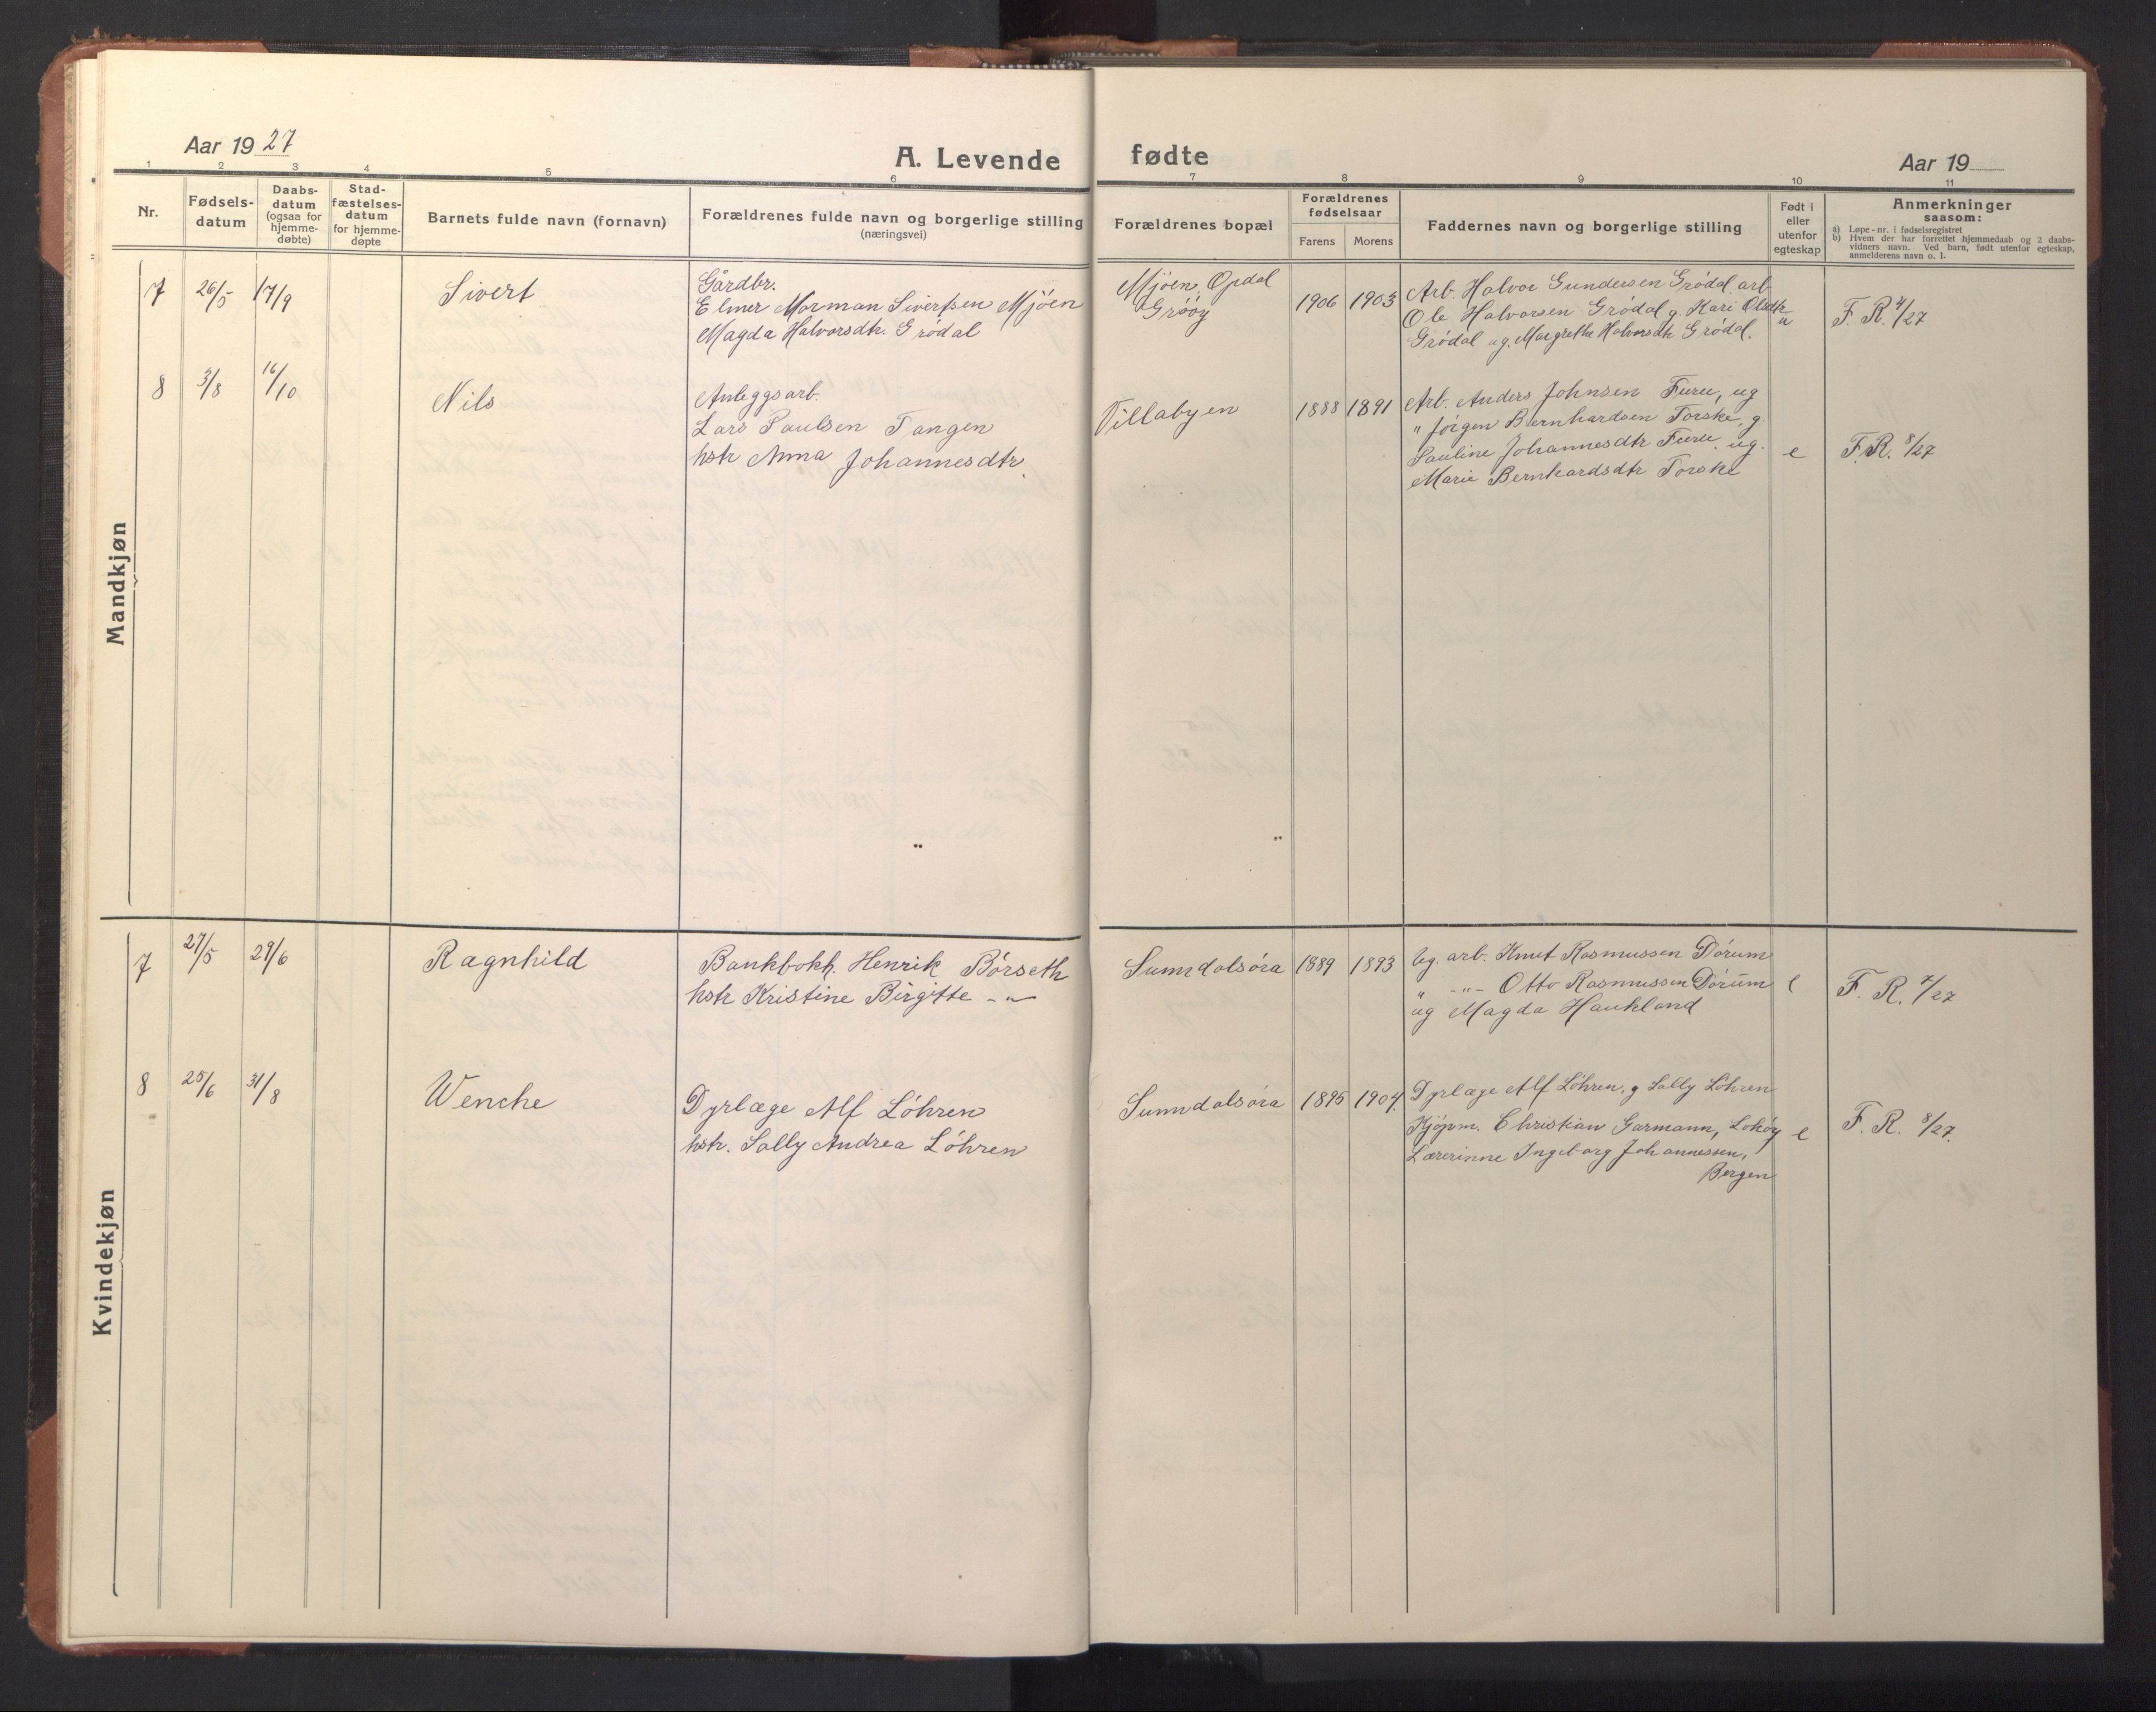 Aar 1927
A. Levende fødte
Aar 19
1 2 3 4 5 6 7 8 9 10 11
Nr.
Fødsels-
datum
Daabs-
datum
(ogsaa for
hjemme-
døbte)
Stad-
fæstelses-
datum
for hjemme-
døpte
Barnets fulde navn (fornavn)
Forældrenes fulde navn og borgerlige stilling
(næringsvei)
Forældrenes bopæl
Forældrenes
fødselsaar
Farens Morens
Faddernes navn og borgerlige stilling
Født i
eller
utenfor
egteskap
Anmerkninger
saasom:
a) Løpe-nr. i fødselsregistret
b) Hvem der har forrettet hjemmedaab og 2 daabs-
vidners navn. Ved barn, født utenfor egteskap,
anmelderens navn o. l.
Mandkjøn
7 26/5 17/9 Sivert
Gårdbr.
Elmer Morman Sivertsen Mjöen
Magda Halvorsdtr. Grödal
Mjöen, Opdal
Grööy
1906 1903
Arb. Halvor Gundersen Grödal, arb
Ole Halvorsen Grödal g. Kari Olsdtr
Grödal ug. Margrethe Halvorsdtr Grödal.
u
F. R. 4/27
8 3/8 16/10 Nils
Anleggsarb.
Lars Paulsen Tangen
hstr Anna Johannesdtr.
Villabyen
1888 1891
Arb. Anders Johnsen Furu, ug
" Jörgen Bernhardsen Torske, g
Pauline Johannesdtr Furu, ug.
Marie Bernhardsdtr Torske
e
F. R. 8/27
Kvindekjøn
7 27/5 29/6 Ragnhild
Bankbokh. Henrik Börseth
hstr Kristine Birgitte -"-
Sunndalsöra
1889 1893
Ug. arb. Knut Rasmussen Dörum
" -"- Otto Rasmussen Dörum
ug Magda Haukland
e
F. R. 7/27
8 25/6 31/8 Wenche
Dyrlæge Alf Löhren
hstr. Sally Andrea Löhren
Sunndalsöra
1895 1904.
Dyrlæge Alf Löhren, g Sally Löhren
Kjöpm. Christian Garmann, Loköy
Lærerinne Ingeborg Johannessen,
Bergen
e
F. R. 8/27.